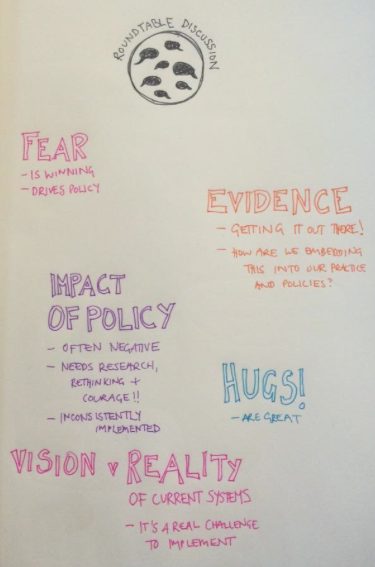 ROUNDTABLE DISCUSSION
FEAR
- IS WINNING
- DRIVES POLICY
EVIDENCE
- GETTING IT OUT THERE!
- HOW ARE WE EMBEDDING
THIS INTO OUR PRACTICE
AND POLICIES?
IMPACT
OF POLICY
- OFTEN NEGATIVE
- NEEDS RESEARCH,
RETHINKING +
COURAGE!!
- INCONSISTENTLY
IMPLEMENTED
HUGS!
- ARE GREAT
VISION v REALITY
OF CURRENT SYSTEMS
- IT'S A REAL CHALLENGE
TO IMPLEMENT